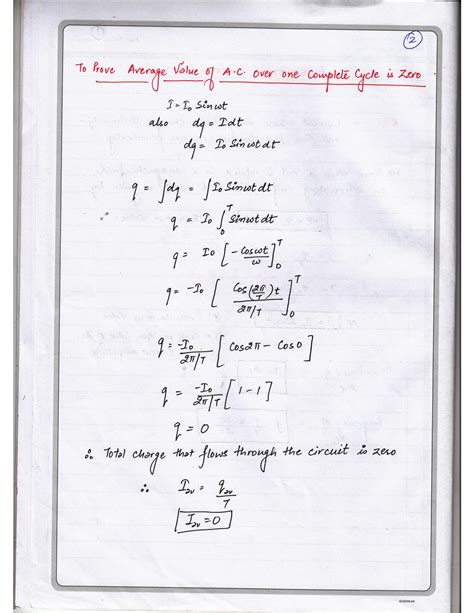 ①
②
To Prove Average Value of A.C. over one Complete Cycle is Zero
I = I₀ Sinωt
also dq = I dt
dq = I₀ Sinωt dt
q = ∫dq = ∫I₀ Sinωt dt
q = I₀ ∫₀ᵀ Sinωt dt
q = I₀ [ - Cosωt / ω ]₀ᵀ
q = -I₀ [ Cos(2π/T)t / 2π/T ]₀ᵀ
q = -I₀ / 2π/T [ Cos2π - Cos0 ]
q = -I₀ / 2π/T [ 1 - 1 ]
q = 0
∴ Total charge that flows through the circuit is zero
∴ Iav = qav / T
Iav = 0